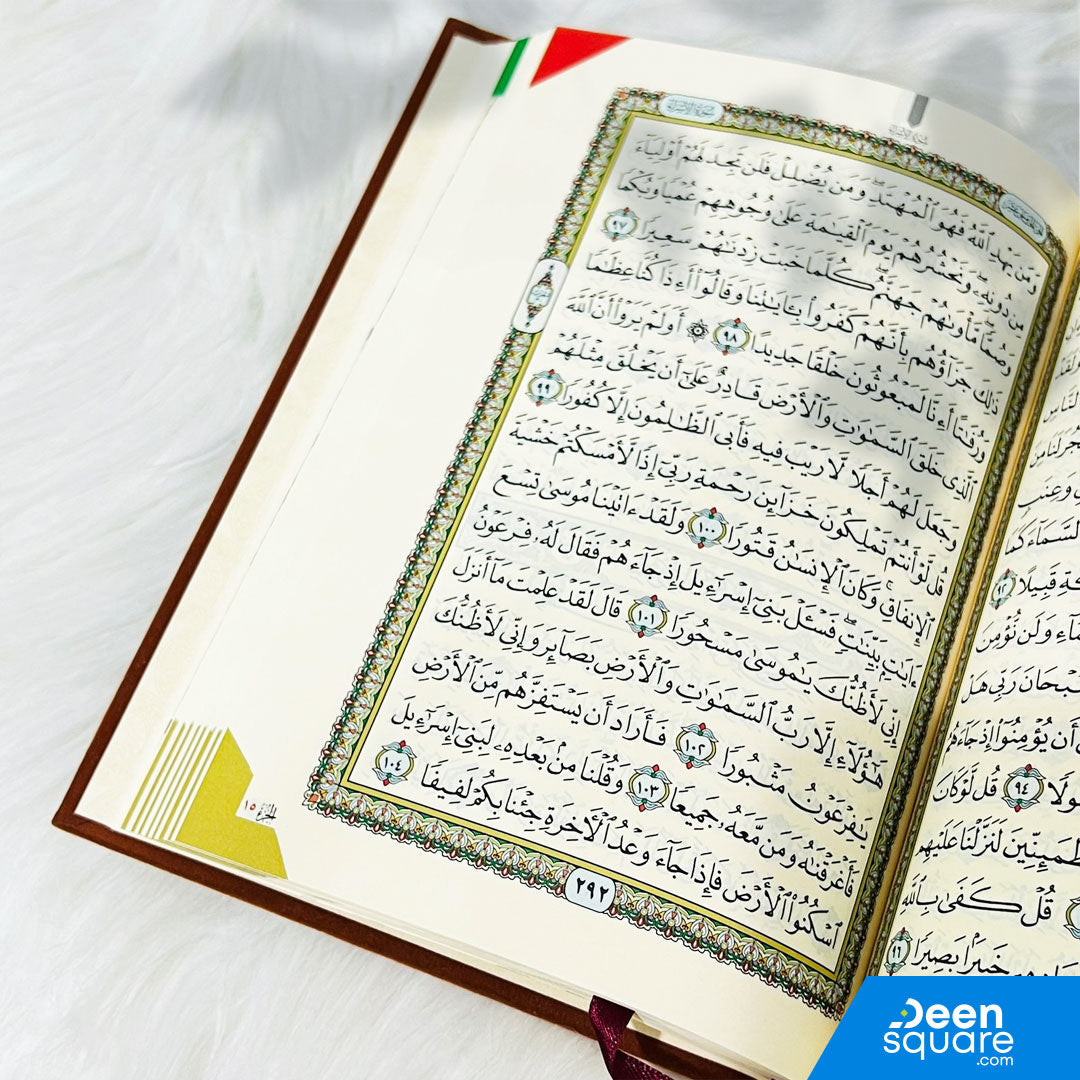 سُورَةُ الإِسْرَاءِ
وَمَن يَهْدِ ٱللَّهُ فَهُوَ ٱلْمُهْتَدِۖ وَمَن يُضْلِلْ فَلَن تَجِدَ لَهُمْ أَوْلِيَآءَ
مِن دُونِهِۦۖ وَنَحْشُرُهُمْ يَوْمَ ٱلْقِيَٰمَةِ عَلَىٰ وُجُوهِهِمْ عُمْيًا وَبُكْمًا
وَصُمًّاۖ مَّأْوَىٰهُمْ جَهَنَّمُۖ كُلَّمَا خَبَتْ زِدْنَٰهُمْ سَعِيرًا ٩٧
ذَٰلِكَ جَزَآؤُهُم بِأَنَّهُمْ كَفَرُوا۟ بِـَٔايَٰتِنَا وَقَالُوٓا۟ أَءِذَا كُنَّا عِظَٰمًا
وَرُفَٰتًا أَءِنَّا لَمَبْعُوثُونَ خَلْقًا جَدِيدًا ٩٨ ۞ أَوَلَمْ يَرَوْا۟ أَنَّ ٱللَّهَ
ٱلَّذِى خَلَقَ ٱلسَّمَٰوَٰتِ وَٱلْأَرْضَ قَادِرٌ عَلَىٰٓ أَن يَخْلُقَ مِثْلَهُمْ
وَجَعَلَ لَهُمْ أَجَلًا لَّا رَيْبَ فِيهِ فَأَبَى ٱلظَّٰلِمُونَ إِلَّا كُفُورًا ٩٩
قُل لَّوْ أَنتُمْ تَمْلِكُونَ خَزَآئِنَ رَحْمَةِ رَبِّىٓ إِذًا لَّأَمْسَكْتُمْ خَشْيَةَ
ٱلْإِنفَاقِۚ وَكَانَ ٱلْإِنسَٰنُ قَتُورًا ١٠٠ وَلَقَدْ ءَاتَيْنَا مُوسَىٰ تِسْعَ
ءَايَٰتٍۭ بَيِّنَٰتٍۖ فَسْـَٔلْ بَنِىٓ إِسْرَٰٓءِيلَ إِذْ جَآءَهُمْ فَقَالَ لَهُۥ فِرْعَوْنُ
إِنِّى لَأَظُنُّكَ يَٰمُوسَىٰ مَسْحُورًا ١٠١ قَالَ لَقَدْ عَلِمْتَ مَآ أَنزَلَ
هَٰٓؤُلَآءِ إِلَّا رَبُّ ٱلسَّمَٰوَٰتِ وَٱلْأَرْضِ بَصَآئِرَ وَإِنِّى لَأَظُنُّكَ
يَٰفِرْعَوْنُ مَثْبُورًا ١٠٢ فَأَرَادَ أَن يَسْتَفِزَّهُم مِّنَ ٱلْأَرْضِ
فَأَغْرَقْنَٰهُ وَمَن مَّعَهُۥ جَمِيعًا ١٠٣ وَقُلْنَا مِنۢ بَعْدِهِۦ لِبَنِىٓ إِسْرَٰٓءِيلَ
ٱسْكُنُوا۟ ٱلْأَرْضَ فَإِذَا جَآءَ وَعْدُ ٱلْأَخِرَةِ جِئْنَا بِكُمْ لَفِيفًا ١٠٤
٢٩٢
١٥
وَعِنَبٍ
ٱلسَّمَآءَ كَمَا
قَبِيلًا ٩٢
وَلَن نُّؤْمِنَ
سُبْحَانَ رَبِّى هَلْ
أَن يُؤْمِنُوٓا۟ إِذْ جَآءَهُمُ
٩٤ قُل لَّوْ كَانَ
لَنَزَّلْنَا عَلَيْهِم
قُلْ كَفَىٰ بِٱللَّهِ
خَبِيرًۢا بَصِيرًا ٩٦
Deen
square
.com